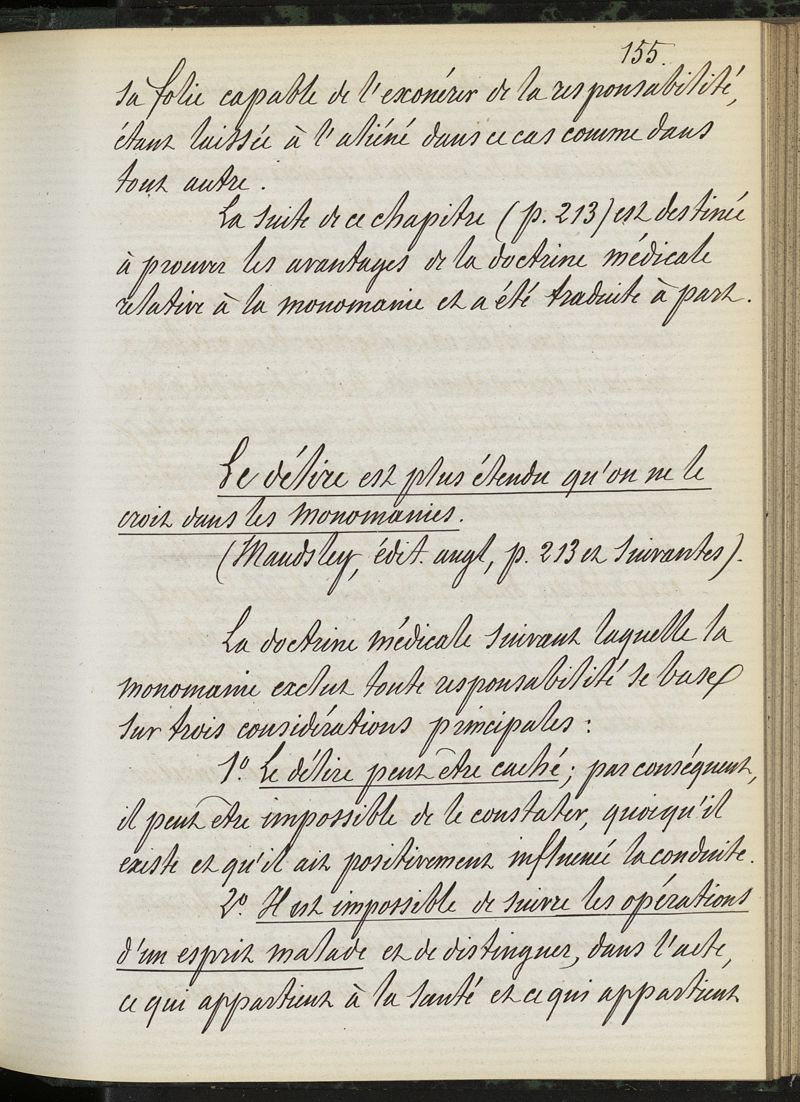 155.
sa folie capable de l'exonérer de la responsabilité,
étant laissée à l'aliéné dans ce cas comme dans
tout autre.
La suite de ce chapitre (p. 213) est destinée
à prouver les avantages de la doctrine médicale
relative à la monomanie et a été traduite à part.
Le délire est plus étendu qu'on ne le
croit dans les monomanies.
(Maudsley, édit. angl, p. 213 et suivantes).
La doctrine médicale suivant laquelle la
monomanie exclut toute responsabilité se base
sur trois considérations principales :
1º. Le délire peut être caché ; par conséquent,
il peut être impossible de le constater, quoiqu'il
existe et qu'il ait positivement influencé la conduite.
2º. Il est impossible de suivre les opérations
d'un esprit malade et de distinguer, dans l'acte,
ce qui appartient à la santé et ce qui appartient